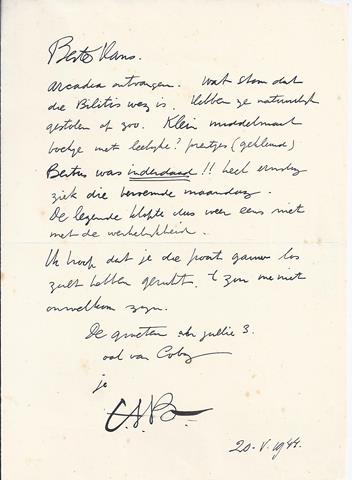 Beste Hans.
arcadia ontvangen. wat stom dat
die Bilitis weg is. Hebben ze natuurlijk
gestolen of zoo. Klein middelmaat
boekje met leelijke? prentjes (gekleurd)
Bertus was inderdaad!! heel ernstig
ziek die beroemde maandag.
De legende klopte dus weer eens niet
met de werkelijkheid.
Ik hoop dat je die poort gauw los
zult hebben gerukt. 't zou me niet
onwelkom zijn.
De groeten aan jullie 3.
ook van Coby
je
20-V-1944.